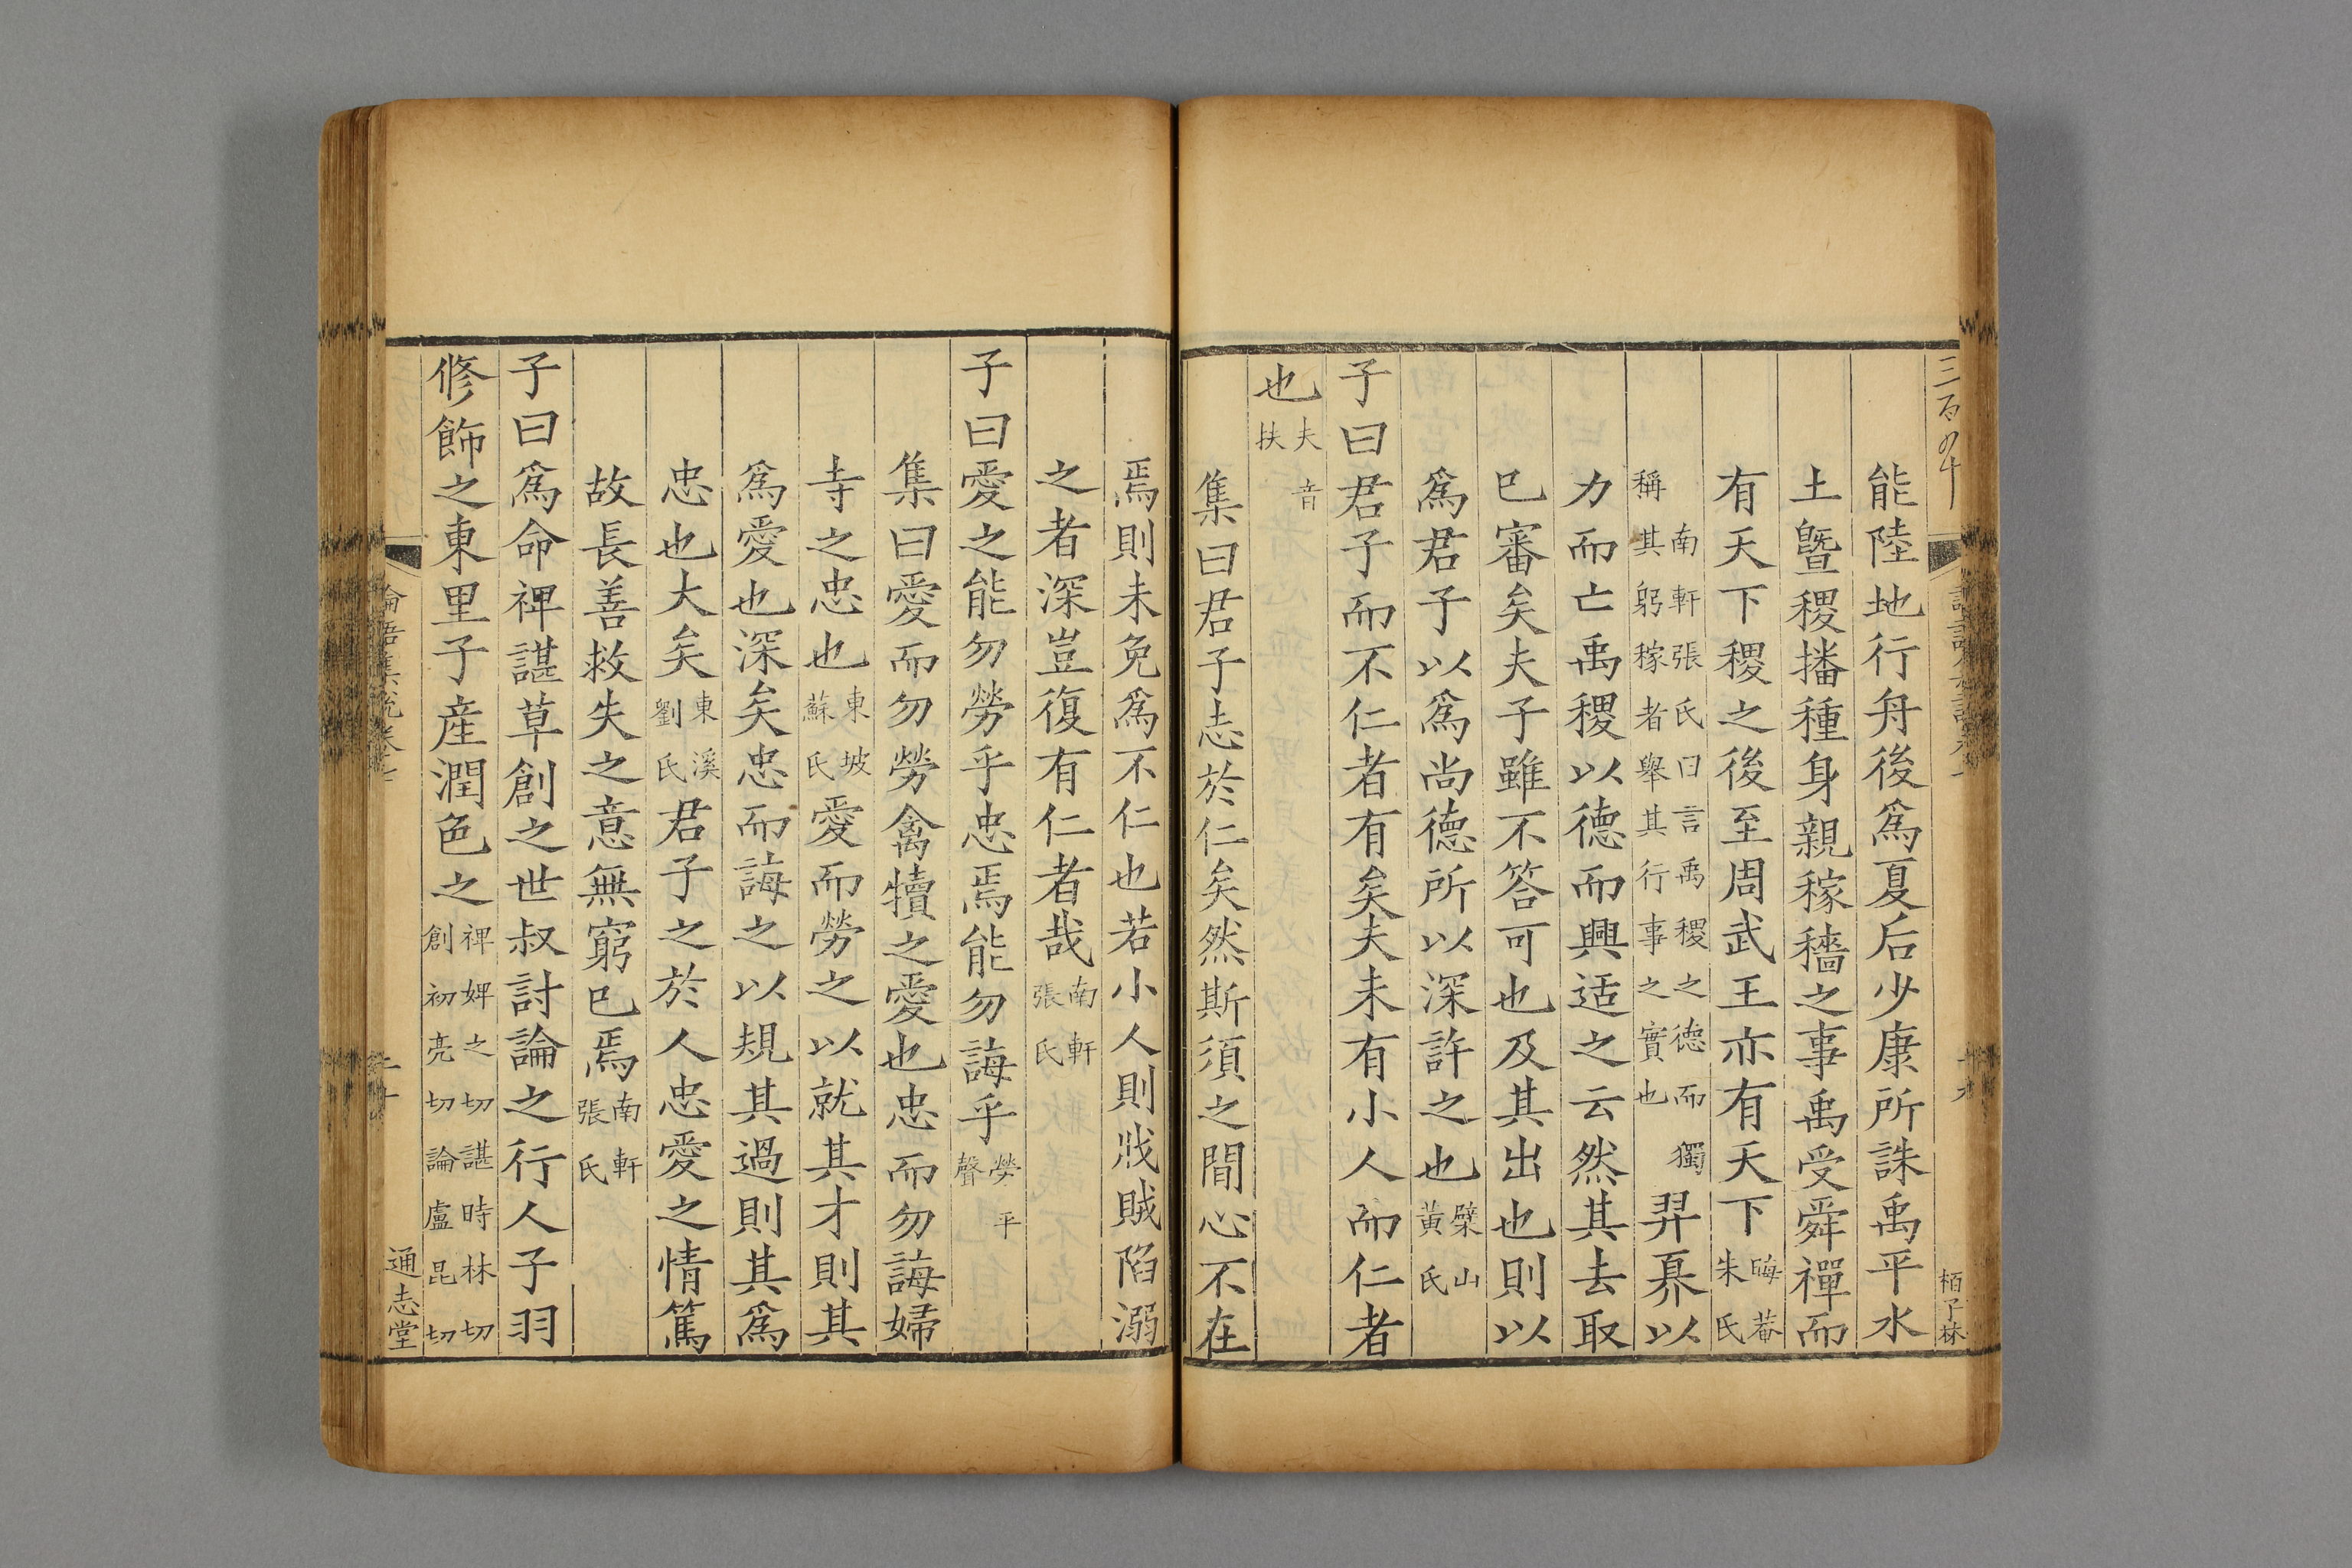 三百四十
能陸地行舟後爲夏后少康所誅禹平水
土曁稷播種身親稼穡之事禹受舜禪而
有天下稷之後至周武王亦有天下晦菴朱氏
南軒張氏曰言禹稷之德而獨稱其躬稼者舉其行事之實也羿奡以
力而亡禹稷以德而興适之云然其去取
已審矣夫子雖不答可也及其出也則以
爲君子以爲尚德所以深許之也檗山黃氏
子曰君子而不仁者有矣夫未有小人而仁者
也夫音扶
集曰君子志於仁矣然斯須之間心不在
十九
栢子林
焉則未免爲不仁也若小人則戕賊陷溺
之者深豈復有仁者哉南軒張氏
子曰愛之能勿勞乎忠焉能勿誨乎勞平聲
集曰愛而勿勞禽犢之愛也忠而勿誨婦
寺之忠也東坡蘇氏愛而勞之以就其才則其
爲愛也深矣忠而誨之以規其過則其爲
忠也大矣東溪劉氏君子之於人忠愛之情篤
故長善救失之意無窮已焉南軒張氏
子曰爲命裨諶草創之世叔討論之行人子羽
修飾之東里子產潤色之裨婢之切諶時林切創初亮切論盧昆切
論語集說卷七
通志堂